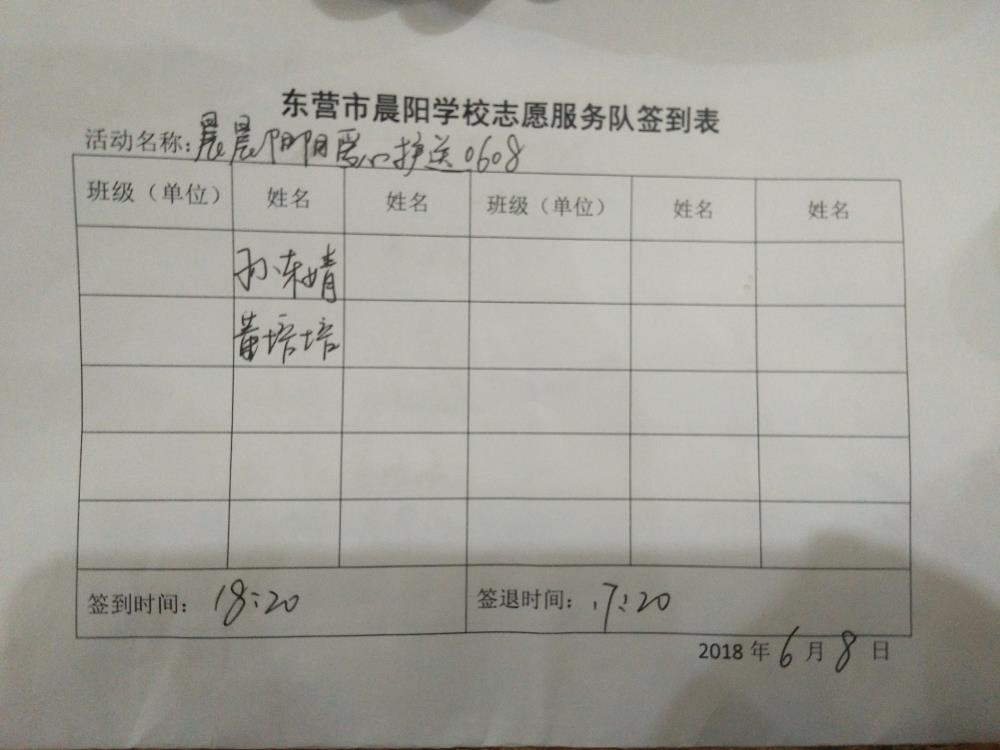 东营市晨阳学校志愿服务队签到表
活动名称:晨晨阳阳爱心护送0608
班级（单位） 姓名 姓名 班级（单位） 姓名 姓名
孙东婧
董培培
签到时间: 18:20 签退时间: 17:20
2018 年 6 月 8 日